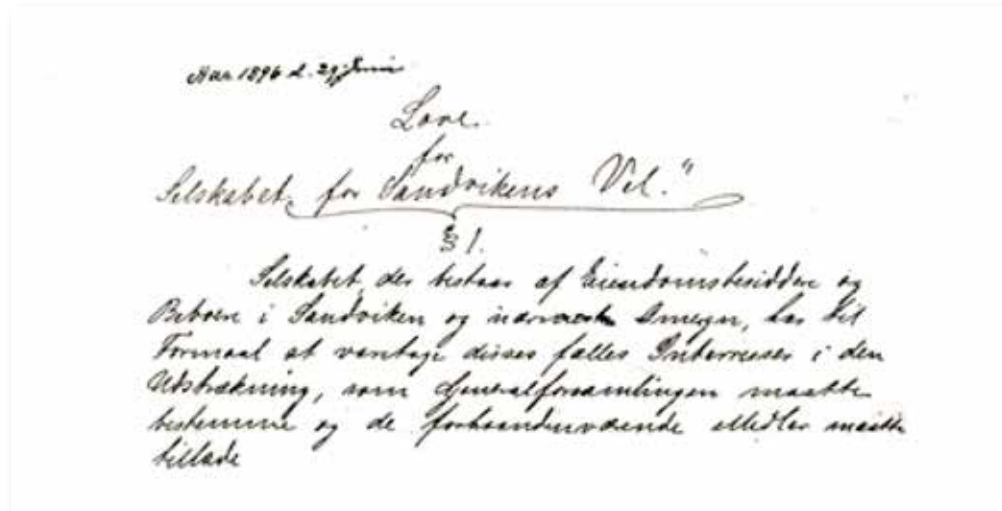 Aar. 1896 d. 29 Juni
Love.
for
Selskabet for Sandvikens Vel."
§ 1.
Selskabet, der bestaar af Eiendomsbesiddere og
Beboere i Sandviken og nærmeste Omegn, har til
Formaal at varetage disses fælles Interesser i den
Udstrækning, som Generalforsamlingen maatte
bestemme og de forhaandenværende Midler maatte
tillade